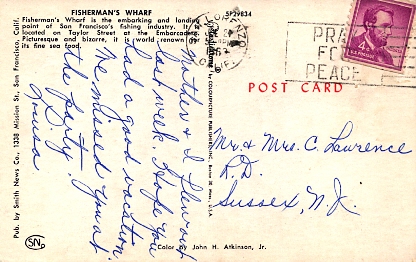 FISHERMAN'S WHARF
Fisherman's Wharf is the embarking and landing
point of San Francisco's fishing industry. It is
located on Taylor Street at the Embarcadero.
Picturesque and bizarre, it is world renown for
its fine sea food.
Pub. by Smith News Co., 1338 Mission St., San Francisco, Calif.
SN
Mother & I flew out
last week. Hope you
had a good vacation.
We missed you at
the party.
LORENZO
CALIF.
PRAY
FOR
PEACE
4¢
POST CARD
Mr. & Mrs. C. Lawrence
R.D.
Sussex, N.J.
Color by John H. Atkinson, Jr.